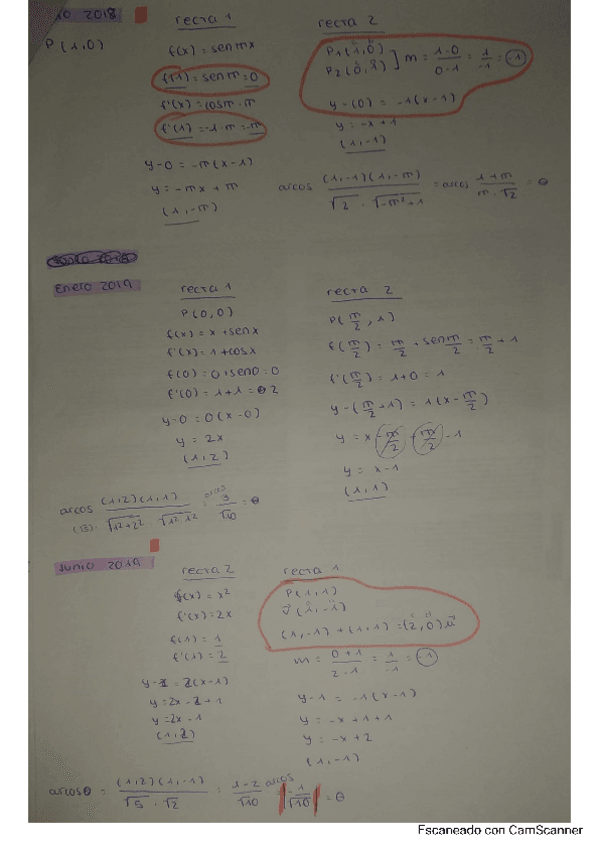 2018
P(1,0)
recta 1
f(x) = sen mx
f(1) = sen m = 0
f'(x) = cosm · m
f'(1) = -1 · m = -m
y-0 = -m(x-1)
y = -mx + m
(1,-m)
recta 2
P1(1,0)
P2(0,1) ] m = 1-0/0-1 = 1/-1 = -1
y-(0) = -1(x-1)
y = -x+1
(1,-1)
arcos (1,-1)(1,-m)/√2 · √-m²+1 = arcos 1+m/m·√2 = θ
Enero 2019
recta 1
P(0,0)
f(x) = x + senx
f'(x) = 1 + cosx
f(0) = 0 + sen0 = 0
f'(0) = 1+1 = 2
y-0 = 0(x-0)
y = 2x
(1,2)
recta 2
P(m/2, 1)
f(m/2) = m/2 + sen m/2 = m/2 + 1
f'(m/2) = 1+0 = 1
y-(m/2+1) = 1(x-m/2)
y = x -1
y = x-1
(1,1)
arcos (1,2)(1,1)/√1²+2² · √1² 1² = arcos 3/√10 = θ
(B).
Junio 2019
recta 2
f(x) = x²
f'(x) = 2x
f(1) = 1
f'(1) = 2
y-1 = 2(x-1)
y = 2x-2+1
y = 2x-1
(1,2)
recta 1
P(1,1)
v(1,-1)
(1,-1)+(1,1) = (2,0) u
m = 0+1/2-1 = 1/-1 = -1
y-1 = -1(x-1)
y = -x+1+1
y = -x+2
(1,-1)
arcosθ = (1,2)(1,-1)/√5 · √2 = 1-2/√10 = arcos |-1/√10| = θ
Escaneado con CamScanner